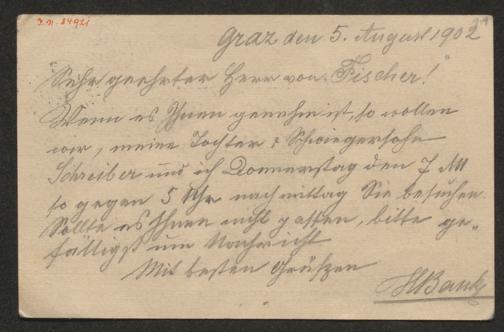 I.N. 84921
Graz den 5. August 1902
Sehr geehrter Herr von Fischer!
Wenn es Ihnen genehm ist, so wollen
wir, meine Tochter & Schwiegersohn
Schreiber und ich Donnerstag den 7
so gegen 5 Uhr nachmittag Sie besuchen
Sollte es Ihnen nicht passen, bitte ge-
fälligst um Nachricht
Mit besten Grüßen